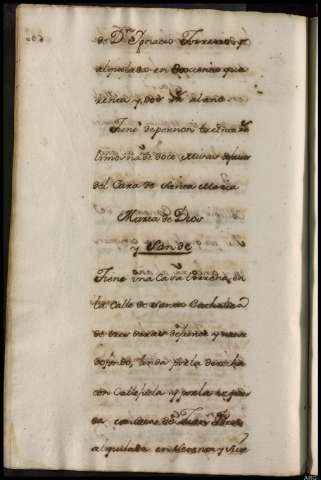 de Dn Ygnacio Torres y
alquilada en Doscientos qua
renta y dos Rs al año
Tiene de pension la
limosna de doce Misas
del Cura de Santa Maria
Maria de Dios
y Sande
Tiene una Casa Terrena en
la Calle de Santa Cathalina
de tres varas de frente y nueve
de fondo, linda por la derecha
con Callejuela y por la izquier
da con la de Dn Juan
alquilada en Noventa y